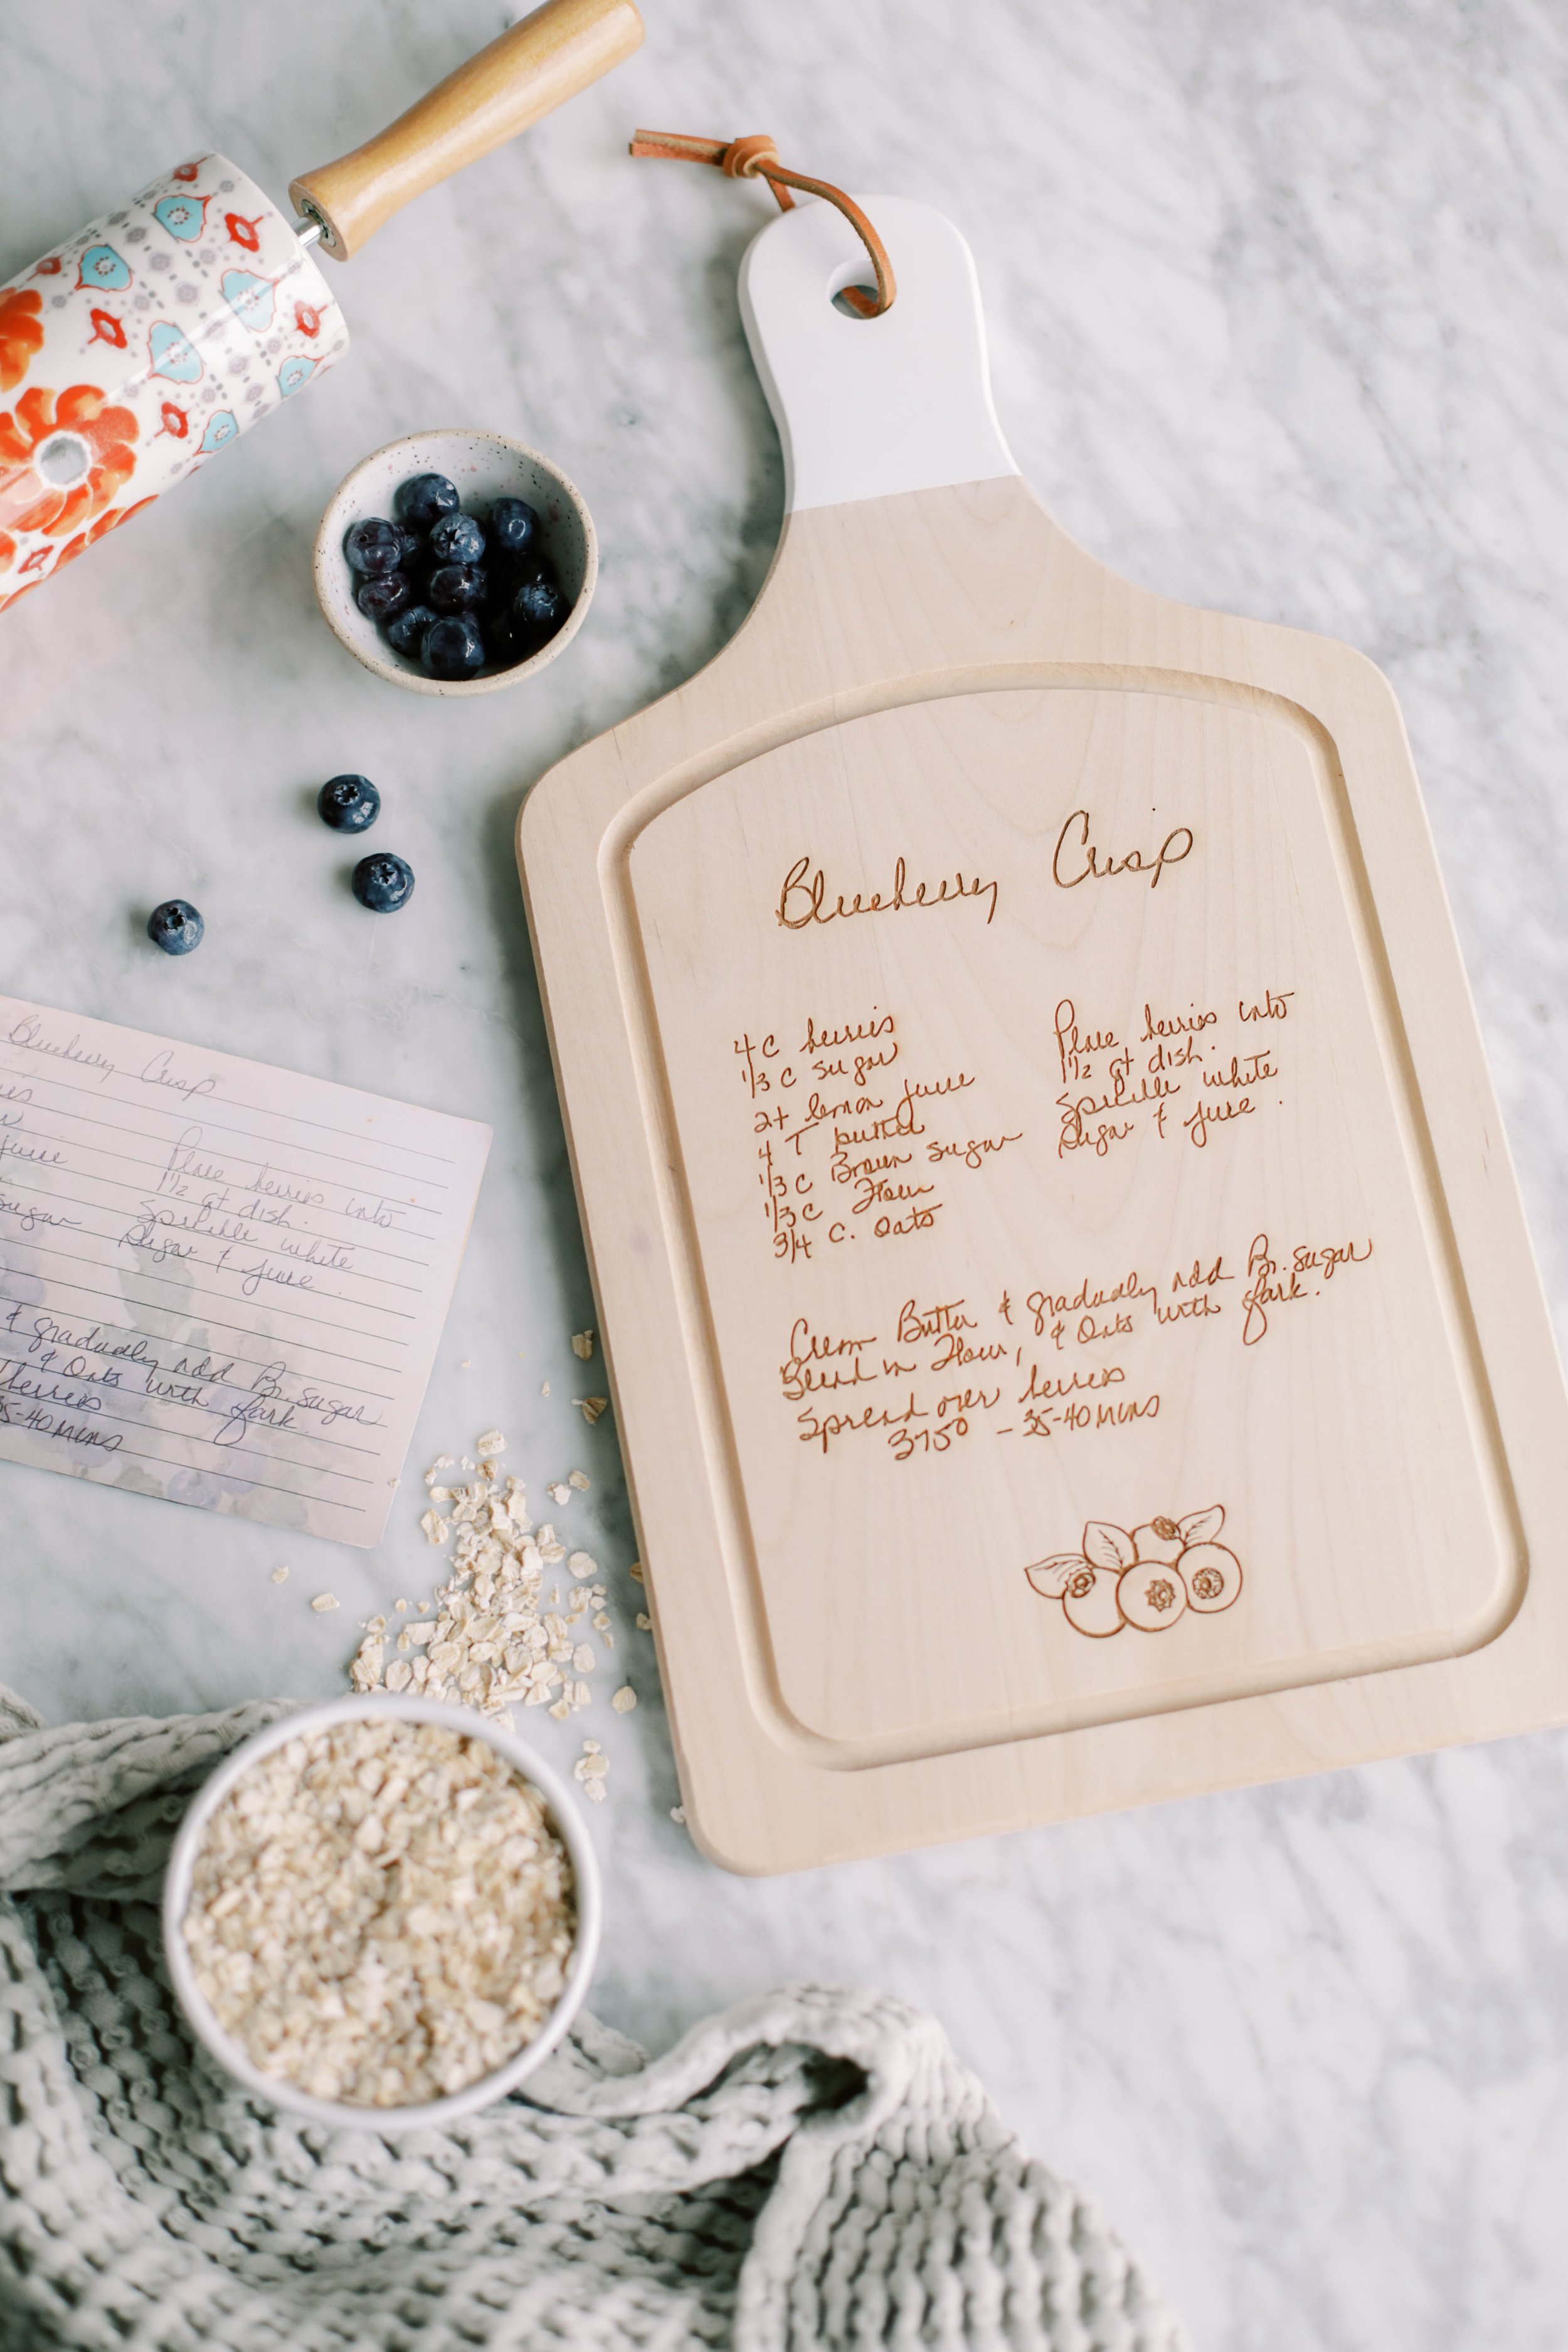 Blueberry Crisp
4 C berries
1/3 C sugar
2t lemon juice
4 T butter
1/3 C Brown sugar
1/3 C Flour
3/4 C. oats
Place berries into
1 1/2 qt dish.
Sprinkle white
Sugar & juice.
Cream Butter & gradually add Br. sugar
Blend in Flour, & Oats with fork.
Spread over berries
375° - 35-40 mins
Blueberry Crisp
juice
sugar
Place berries into
1 1/2 qt dish.
Sprinkle white
Sugar & juice.
& gradually add Br. sugar
& Oats with fork.
berries
35-40 mins